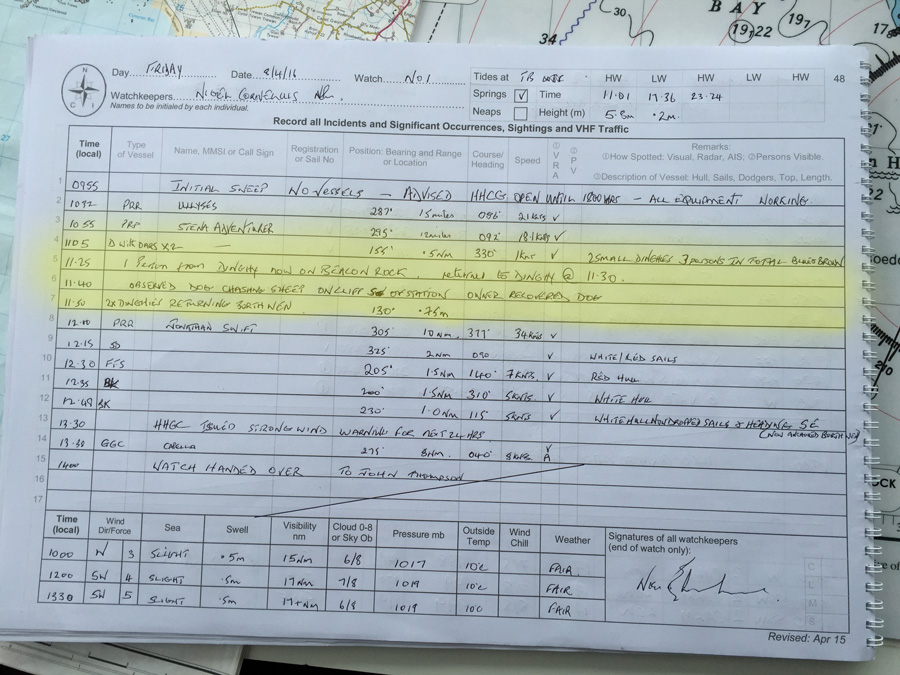 BAY
30
34
19₇
19₇22
17
Day FRIDAY Date 8/4/16 Watch No 1 Tides at HW LW HW LW HW 48
Watchkeepers NIGEL CORNELIUS Springs ✓ Time 11.01 17.36 23.24
Names to be initialed by each individual. Neaps Height (m) 5.8m .2m.
Record all Incidents and Significant Occurrences, Sightings and VHF Traffic
Time (local) Type of Vessel Name, MMSI or Call Sign Registration or Sail No Position: Bearing and Range or Location Course/ Heading Speed ①V R A ②P V Remarks: ①How Spotted: Visual, Radar, AIS, ②Persons Visible. ③Description of Vessel: Hull, Sails, Dodgers, Top, Length.
1 0955 INITIAL SWEEP NO VESSELS – ADVISED HHCG OPEN UNTIL 1800HRS – ALL EQUIPMENT WORKING.
2 1032 PRR ULYSES 287° 15miles 096° 21kts ✓
3 10 55 PRR STENA ADVENTURER 295° 12miles 092° 18.1kts ✓
4 1105 DWK DARS X2 – 155° .5NM 330° 1knt ✓ 2 SMALL DINGHIES 3 PERSONS IN TOTAL BLUE & BROWN
5 11.25 1 Person from DINGHY now ON BEACON ROCK. returned to DINGHY @ 11.30.
6 11.40 OBSERVED DOG CHASING SHEEP ON CLIFF OF STATION OWNER RECOVERED DOG
7 11.50 2x DINGHIES RETURNING BORTHWEN 130° .75m
8 12.10 PRR JONATHAN SWIFT 305° 10 NM. 317° 34knts ✓
9 12.15 325° 2NM 090 ✓ WHITE/RED SAILS
10 12.30 FIS 205° 1.5NM 140° 7KNTS. ✓ RED HULL
11 12.35 BK 200° 1.5NM 310° 5KNTS ✓ WHITE HULL
12 12.48 BK 230° 1.0NM 115° 5KNTS ✓ WHITE HULL NOW DROPPED SAILS & HEADING SE
13 13.30 HHGC ISSUED STRONG WIND WARNING FOR NEXT 24HRS (NOW ANCHORED BORTHWEN)
14 13.38 GGC CABELLA 275° 8NM. 040° 8KNTS ✓ A
15 1400 WATCH HANDED OVER TO JOHN THOMPSON
16
17
Time (local) Wind Dir/Force Sea Swell Visibility nm Cloud 0-8 or Sky Ob Pressure mb Outside Temp Wind Chill Weather Signatures of all watchkeepers (end of watch only):
1000 W 3 SLIGHT .5m 15NM 6/8 1017 10°C FAIR.
1200 SW 4 SLIGHT .5m 17NM 7/8 1019 10°C FAIR
1330 SW 5 SLIGHT .5m 17+NM 6/8 1019 10°C FAIR
Revised: Apr 15